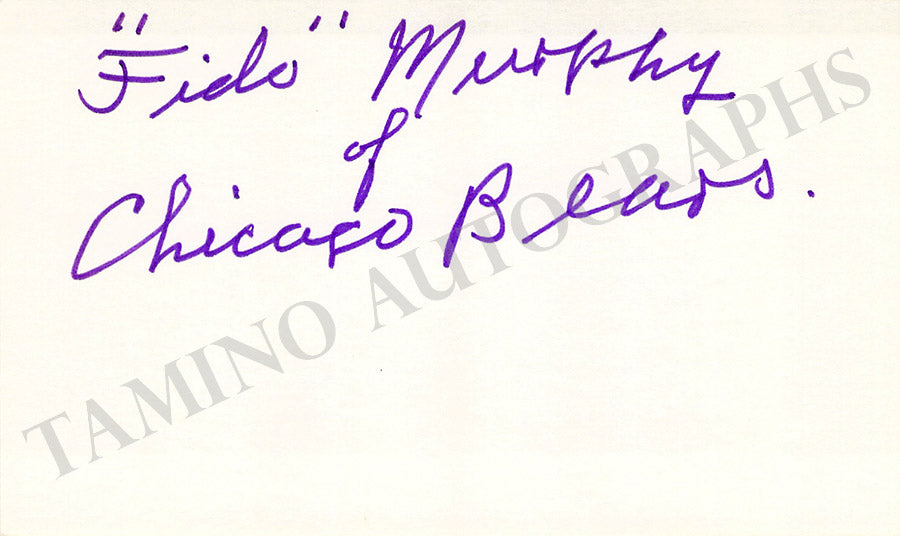 "Fido" Murphy
of
Chicago Bears.
TAMINO AUTOGRAPHS